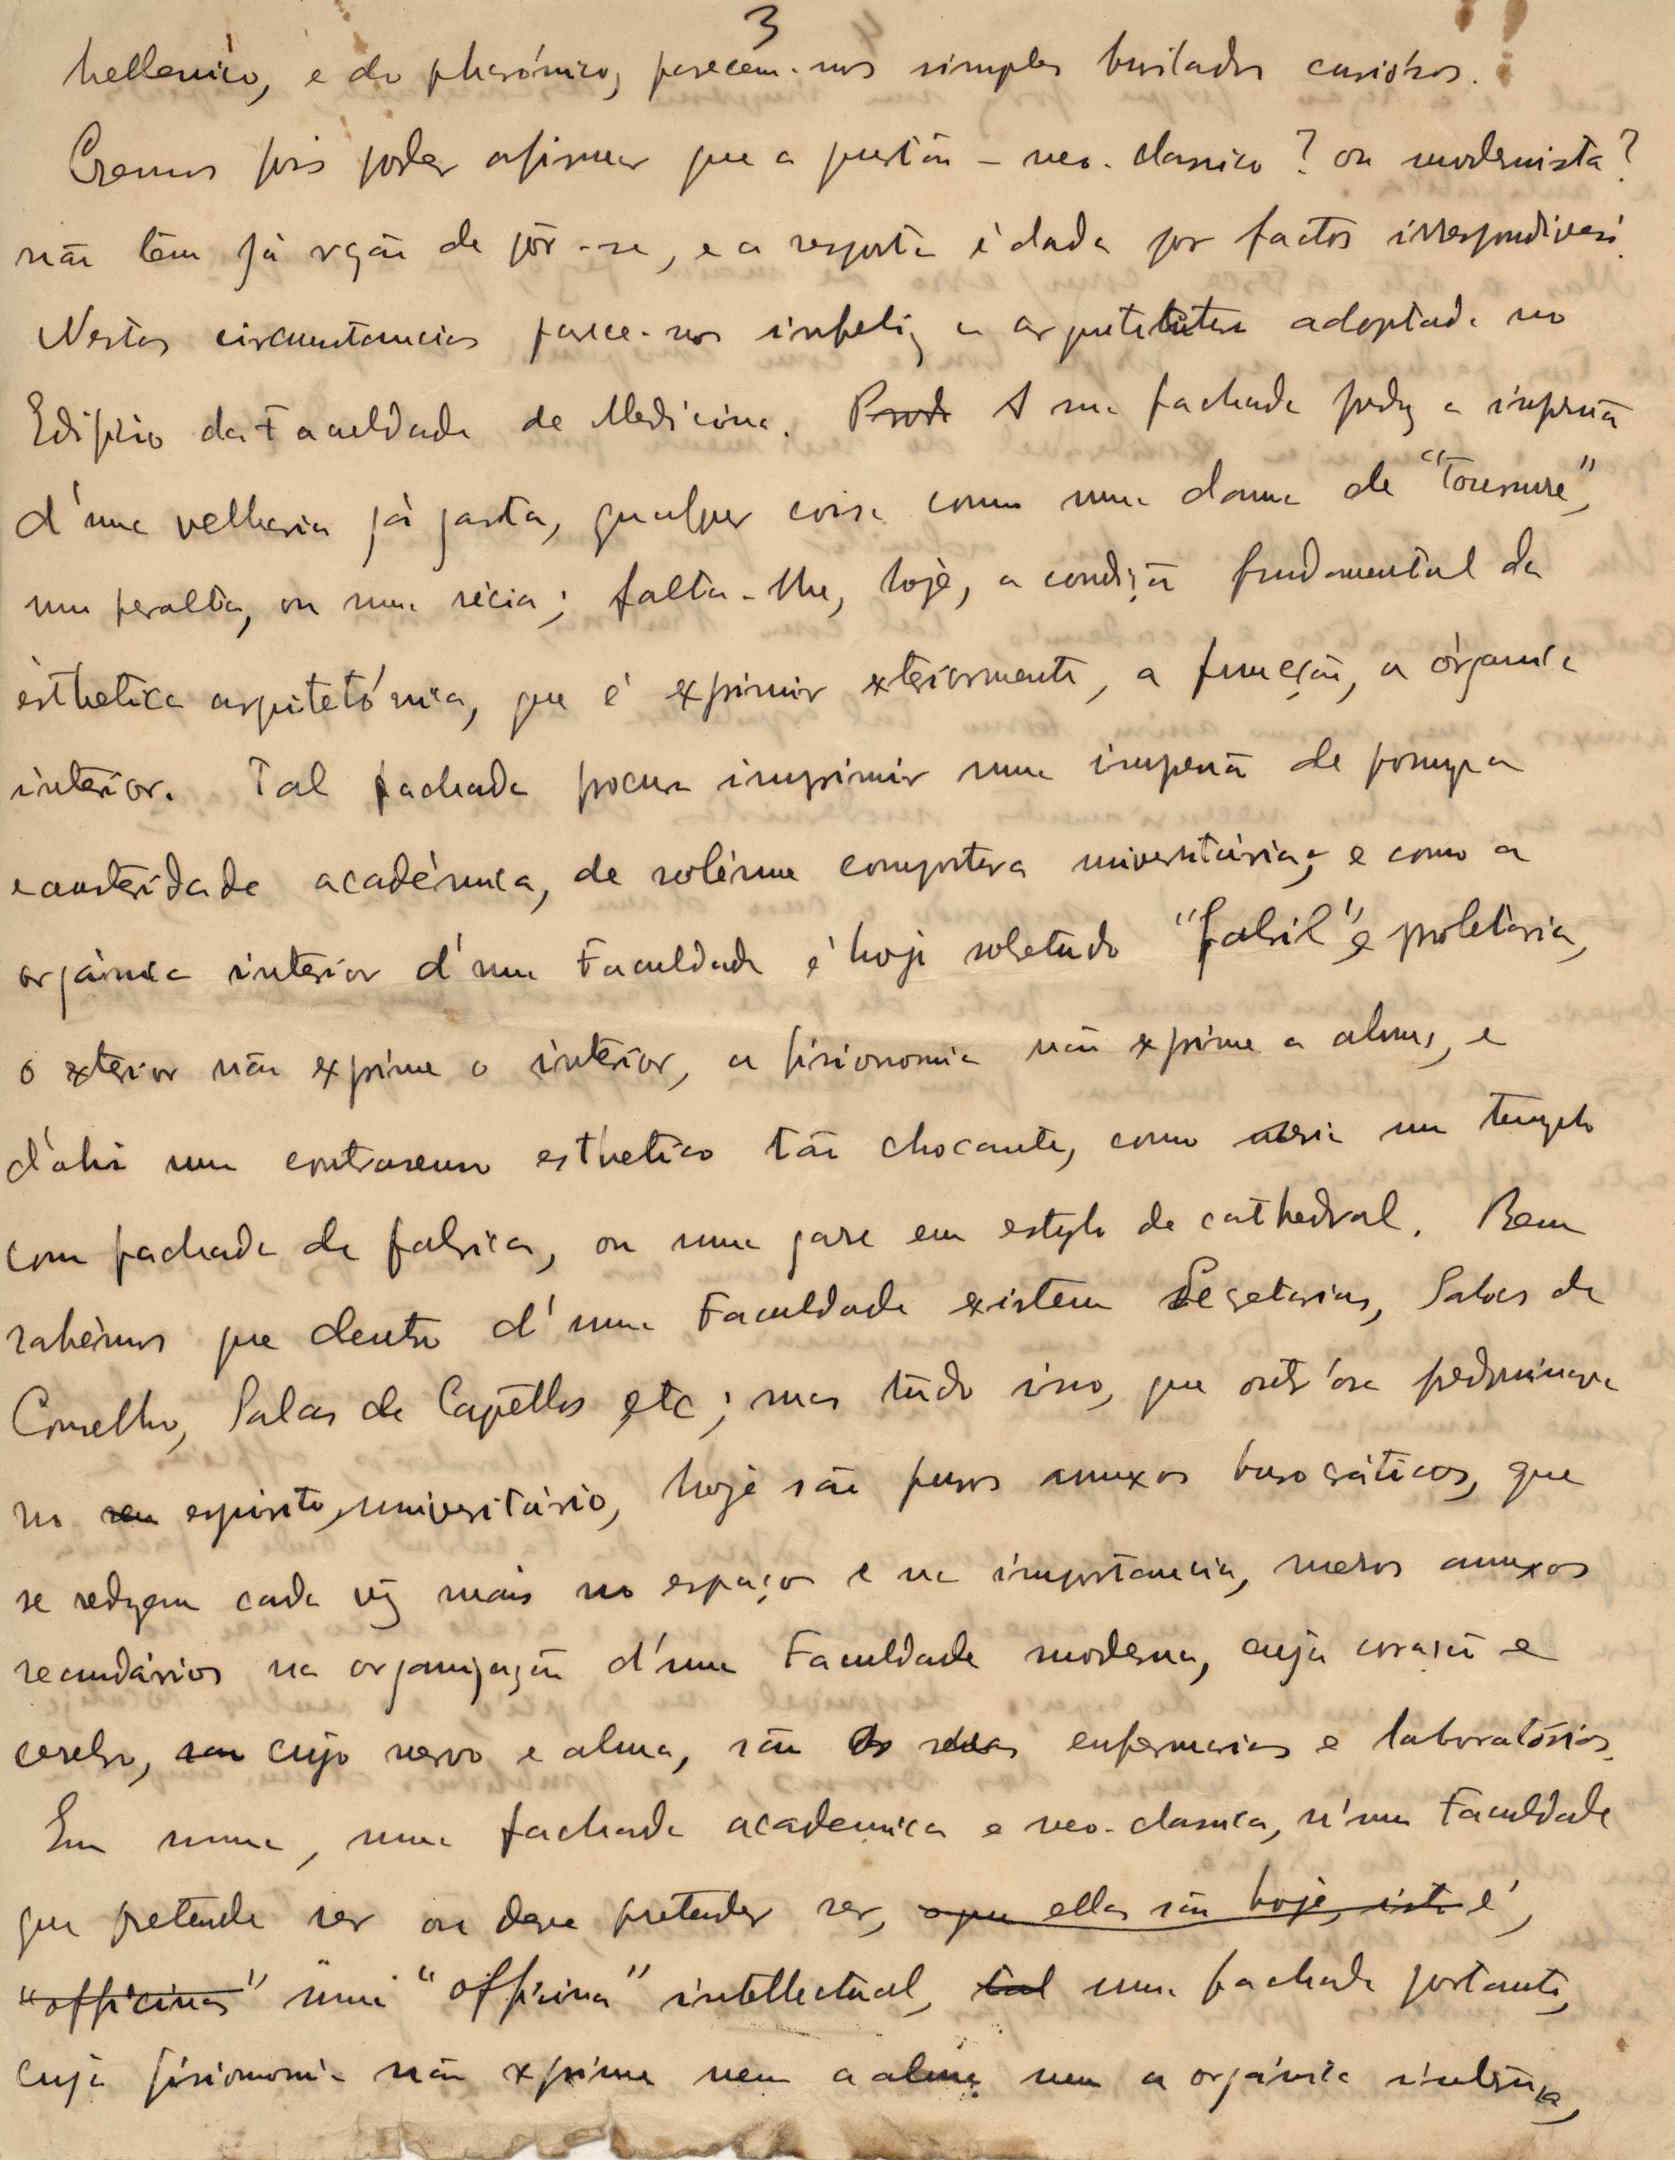 3
hellenico, e do pharónico, parecem-nos simples burilados curiósos.
Cremos pois poder afirmar que a questão – neo-classico? ou modernista?
não têm já rzão de pôr-se, e a resposta é dada por factos irrespondiveis.
Nestas circumstancias parece-nos infeliz a arquitetutura adoptada no
Edificio da Faculdade de Medicina. Prod A sua fachada produz a impressão
d'uma velharia já gasta, qualquer coisa como uma dama de "Tournure",
um peralta, ou uma sécia; falta-lhe, hoje, a condição fundamental da
ésthetica arquitetónica, que é exprimir exteriormente, a função, a órganica
interior. Tal fachada procura imprimir uma impressão de pompa
e austeridade académica, de solémne compostura universitária; e como a
orgánica interior d'uma Faculdade é hoje sobretudo "fabril" e proletária,
o exterior não exprime o interior, a fisionomia não exprime a alma, e
d'ahi um contrasenso esthetico tão chocante, como seria um templo
com fachada de fabrica, ou uma gare em estylo de cathedral. Bem
sabêmos que dentro d'uma Faculdade existem Secretarias, Salas de
Conselho, Salas de Capêllos etc; mas tudo isso, que outr'ora predominava
no seu espirito universitário, hoje são puros anexos burocráticos, que
se reduzem cada vez mais no espaço e na importancia, meros anexos
secundários na organização d'uma Faculdade moderna, cujo coração e
cerebro, seu cujo nervo e alma, são as suas enfermarias e laboratórios.
Em suma, uma fachada academica e neo-classica, n'uma Faculdade
que pretende ser ou deve pretender ser, o que ellas são hoje, isto é,
"officinas" uma "officina" intellectual, tal uma fachada portanto,
cuja fisionomia não exprime nem a alma nem a orgánica interna,